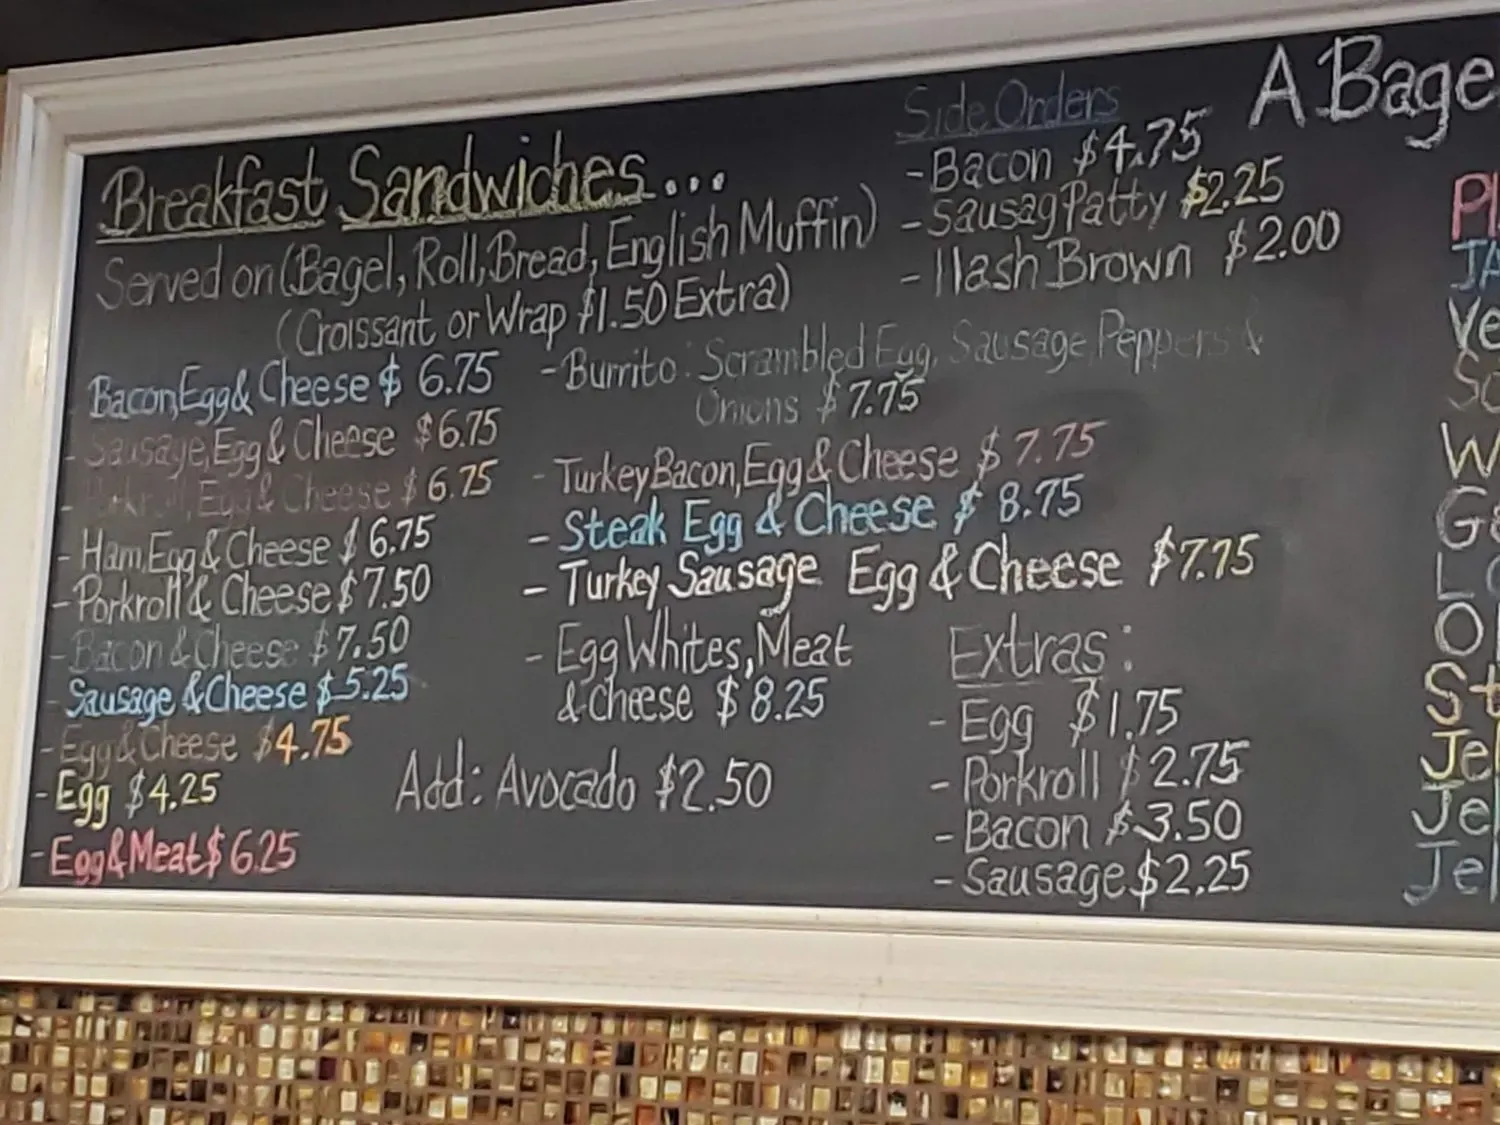 Breakfast Sandwiches...
Served on (Bagel, Roll, Bread, English Muffin)
(Croissant or Wrap $1.50 Extra)
Bacon, Egg & Cheese $ 6.75
- Sausage, Egg & Cheese $6.75
- Porkroll, Egg & Cheese $ 6.75
- Ham, Egg & Cheese $ 6.75
- Porkroll & Cheese $ 7.50
- Bacon & Cheese $7.50
- Sausage & Cheese $5.25
- Egg & Cheese $4.75
- Egg $4.25
- Egg & Meat $ 6.25
- Burrito: Scrambled Egg, Sausage, Peppers &
Onions $7.75
- Turkey Bacon, Egg & Cheese $ 7.75
- Steak Egg & Cheese $ 8.75
- Turkey Sausage Egg & Cheese $7.75
- Egg Whites, Meat
& cheese $ 8.25
Add: Avocado $2.50
Side Orders
- Bacon $4.75
- Sausag Patty $2.25
- Hash Brown $2.00
Extras:
- Egg $1.75
- Porkroll $2.75
- Bacon $3.50
- Sausage $2.25
A Bage
Pl
JA
Ve
W
St
Jel
Jel
Jel